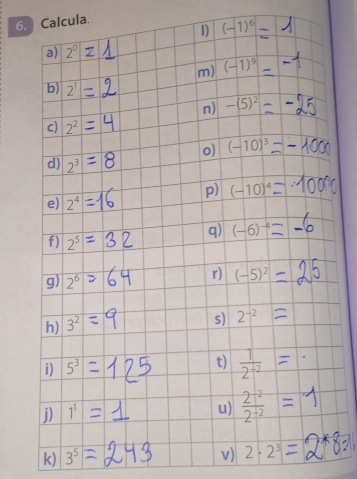 6. Calcula.
a) 2⁰ = 1
b) 2¹ = 2
c) 2² = 4
d) 2³ = 8
e) 2⁴ = 16
f) 2⁵ = 32
g) 2⁶ = 64
h) 3² = 9
i) 5³ = 125
j) 1¹ = 1
k) 3⁵ = 243
l) (-1)⁶ = 1
m) (-1)⁹ = -1
n) -(5)² = -25
o) (-10)³ = -1000
p) (-10)⁴ = 10000
q) (-6) = -6
r) (-5)² = 25
s) 2⁻² =
t) 1/2⁻² =
u) 2⁻²/2⁻² = 1
v) 2 · 2³ = 2*8=